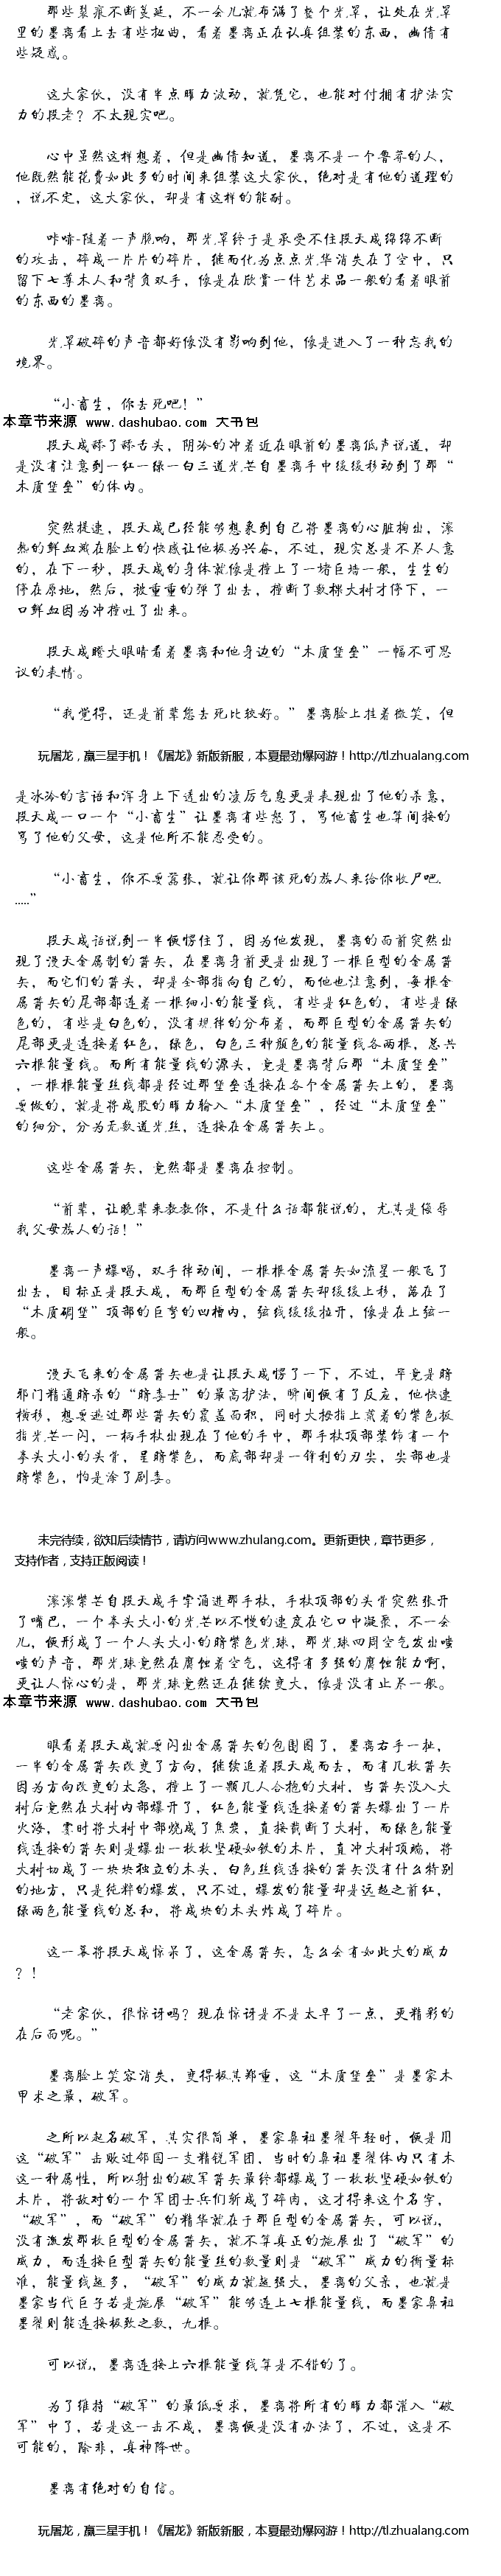 那些裂痕不断蔓延，不一会儿就布满了整个光罩，让处在光罩
里的墨离看上去有些扭曲，看着墨离正在认真组装的东西，幽倩有
些疑惑。
这大家伙，没有半点暗力波动，就凭它，也能对付拥有护法实
力的段老？不太现实吧。
心中虽然这样想着，但是幽倩知道，墨离不是一个鲁莽的人，
他既然能花费如此多的时间来组装这大家伙，绝对是有他的道理的
，说不定，这大家伙，却是有这样的能耐。
咔嘣-随着一声脆响，那光罩终于是承受不住段天成绵绵不断
的攻击，碎成一片片的碎片，继而化为点点光华消失在了空中，只
留下七尊木人和背负双手，像是在欣赏一件艺术品一般的看着眼前
的东西的墨离。
光罩破碎的声音都好像没有影响到他，像是进入了一种忘我的
境界。
“小畜生，你去死吧！”
本章节来源 www.dashubao.com 大书包
段天成舔了舔舌头，阴冷的冲着近在眼前的墨离低声说道，却
是没有注意到一红一绿一白三道光芒自墨离手中缓缓移动到了那“
木质堡垒”的体内。
突然提速，段天成已经能够想象到自己将墨离的心脏掏出，滚
热的鲜血溅在脸上的快感让他极为兴奋，不过，现实总是不尽人意
的，在下一秒，段天成的身体就像是撞上了一堵巨墙一般，生生的
停在原地，然后，被重重的弹了出去，撞断了数棵大树才停下，一
口鲜血因为冲撞吐了出来。
段天成瞪大眼睛看着墨离和他身边的“木质堡垒”一幅不可思
议的表情。
“我觉得，还是前辈您去死比较好。”墨离脸上挂着微笑，但
玩屠龙，赢三星手机！《屠龙》新版新服，本夏最劲爆网游！http://tl.zhualang.com
是冰冷的言语和浑身上下透出的凌厉气息更是表现出了他的杀意，
段天成一口一个“小畜生”让墨离有些怒了，骂他畜生也算间接的
骂了他的父母，这是他所不能忍受的。
“小畜生，你不要嚣张，就让你那该死的族人来给你收尸吧.
.....”
段天成话说到一半便愣住了，因为他发现，墨离的面前突然出
现了漫天金属制的箭矢，在墨离身前更是出现了一根巨型的金属箭
矢，而它们的箭头，却是全部指向自己的，而他也注意到，每根金
属箭矢的尾部都连着一根细小的能量线，有些是红色的，有些是绿
色的，有些是白色的，没有规律的分布着，而那巨型的金属箭矢的
尾部更是连接着红色，绿色，白色三种颜色的能量线各两根，总共
六根能量线。而所有能量线的源头，竟是墨离背后那“木质堡垒”
，一根根能量丝线都是经过那堡垒连接在各个金属箭矢上的，墨离
要做的，就是将成股的暗力输入“木质堡垒”，经过“木质堡垒”
的细分，分为无数道光丝，连接在金属箭矢上。
这些金属箭矢，竟然都是墨离在控制。
“前辈，让晚辈来教教你，不是什么话都能说的，尤其是侮辱
我父母族人的话！”
墨离一声爆喝，双手律动间，一根根金属箭矢如流星一般飞了
出去，目标正是段天成，而那巨型的金属箭矢却缓缓上移，落在了
“木质碉堡”顶部的巨弩的凹槽内，弦线缓缓拉开，像是在上弦一
般。
漫天飞来的金属箭矢也是让段天成愣了一下，不过，毕竟是暗
邪门精通暗杀的“暗毒士”的最高护法，瞬间便有了反应，他快速
横移，想要逃过那些箭矢的覆盖面积，同时大拇指上戴着的紫色扳
指光芒一闪，一柄手杖出现在了他的手中，那手杖顶部装饰有一个
拳头大小的头骨，呈暗紫色，而底部却是一锋利的刃尖，尖部也是
暗紫色，怕是涂了剧毒。
未完待续，欲知后续情节，请访问www.zhulang.com。更新更快，章节更多，
支持作者，支持正版阅读！
滚滚紫芒自段天成手掌涌进那手杖，手杖顶部的头骨突然张开
了嘴巴，一个拳头大小的光芒以不慢的速度在它口中凝聚，不一会
儿，便形成了一个人头大小的暗紫色光球，那光球四周空气发出嗤
嗤的声音，那光球竟然在腐蚀着空气，这得有多强的腐蚀能力啊，
更让人惊心的是，那光球竟然还在继续变大，像是没有止尽一般。
本章节来源 www.dashubao.com 大书包
眼看着段天成就要闪出金属箭矢的包围圈了，墨离右手一扯，
一半的金属箭矢改变了方向，继续追着段天成而去，而有几枚箭矢
因为方向改变的太急，撞上了一颗几人合抱的大树，当箭矢没入大
树后竟然在大树内部爆开了，红色能量线连接着的箭矢爆出了一片
火海，霎时将大树中部烧成了焦炭，直接截断了大树，而绿色能量
线连接的箭矢则是爆出一枚枚坚硬如铁的木片，直冲大树顶端，将
大树切成了一块块独立的木头，白色丝线连接的箭矢没有什么特别
的地方，只是纯粹的爆发，只不过，爆发的能量却是远超之前红，
绿两色能量线的总和，将成块的木头炸成了碎片。
这一幕将段天成惊呆了，这金属箭矢，怎么会有如此大的威力
？！
“老家伙，很惊讶吗？现在惊讶是不是太早了一点，更精彩的
在后面呢。”
墨离脸上笑容消失，变得极其郑重，这“木质堡垒”是墨家木
甲术之最，破军。
之所以起名破军，其实很简单，墨家鼻祖墨翟年轻时，便是用
这“破军”击败过邻国一支精锐军团，当时的鼻祖墨翟体内只有木
这一种属性，所以射出的破军箭矢最终都爆成了一枚枚坚硬如铁的
木片，将敌对的一个军团士兵们斩成了碎肉，这才得来这个名字，
“破军”，而“破军”的精华就在于那巨型的金属箭矢，可以说，
没有激发那枚巨型的金属箭矢，就不算真正的施展出了“破军”的
威力，而连接巨型箭矢的能量丝的数量则是“破军”威力的衡量标
准，能量线越多，“破军”的威力就越强大，墨离的父亲，也就是
墨家当代巨子若是施展“破军”能够连上七根能量线，而墨家鼻祖
墨翟则能连接极致之数，九根。
可以说，墨离连接上六根能量线算是不错的了。
为了维持“破军”的最低要求，墨离将所有的暗力都灌入“破
军”中了，若是这一击不成，墨离便是没有办法了，不过，这是不
可能的，除非，真神降世。
墨离有绝对的自信。
玩屠龙，赢三星手机！《屠龙》新版新服，本夏最劲爆网游！http://tl.zhualang.com